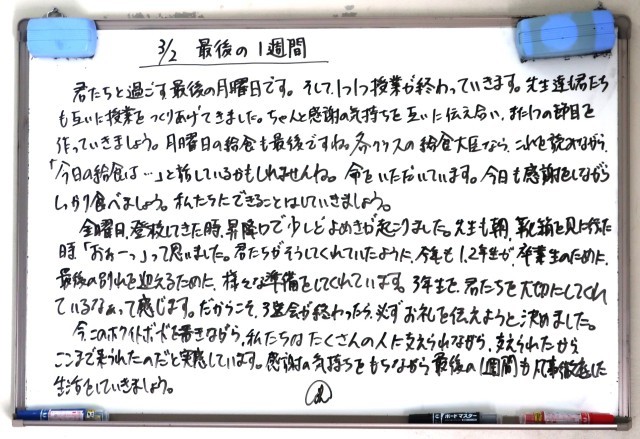 3/2 最後の1週間
君たちと過ごす最後の月曜日です。そして、1つ1つ授業が終わっていきます。先生達も君たち
も互いに授業をつくりあげてきました。ちゃんと感謝の気持ちを互いに伝え合い、また1つの節目を
作っていきましょう。月曜日の給食も最後ですね。各クラスの給食大臣なら、これを読みながら、
「今日の給食は…」と話しているかもしれませんね。命をいただいています。今日も感謝をしながら
しっかり食べましょう。私たちにできることはしていきましょう。
金曜日、登校してきた時、昇降口で少しどよめきが起こりました。先生も朝、靴箱を見に行った
時「おぉーっ」って思いました。君たちがそうしてくれていたように、今年も1,2年生が、卒業生のために、
最後の別れを迎えるために、様々な準備をしてくれています。3年生を、君たちを大切にしてくれ
ているなぁって感じます。だからこそ、3送会が終わったら、必ずお礼を伝えようと決めました。
今、このホワイトボードを書きながら、私たちはたくさんの人に支えられながら、支えられたから
ここまで来られたのだと実感しています。感謝の気持ちをもちながら最後の1週間も凡事徹底した
生活をしていきましょう。
ボードマスター